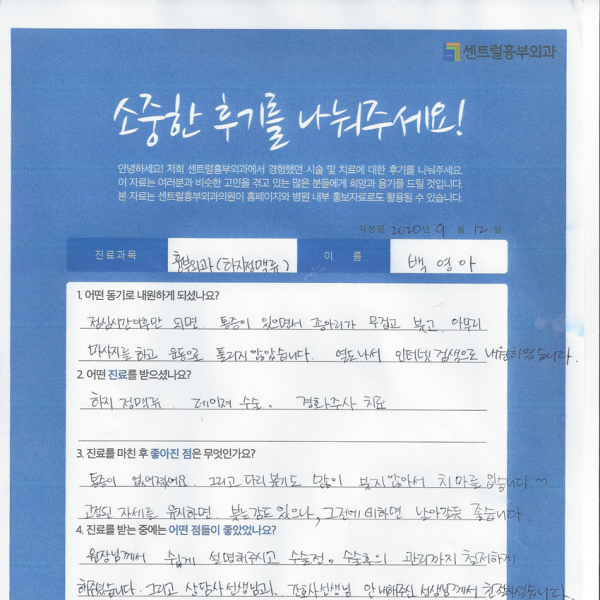 센트럴흉부외과
소중한 후기를 나눠주세요!
안녕하세요! 저희 센트럴흉부외과에서 경험했던 시술 및 치료에 대한 후기를 나눠주세요.
이 자료는 여러분과 비슷한 고민을 겪고 있는 많은 분들에게 희망과 용기를 드릴 것입니다.
본 자료는 센트럴흉부외과의원이 홈페이지와 병원 내부 홍보자료로도 활용될 수 있습니다.
작성일 2020년 9 월 12 일
진료과목 흉부외과 (하지정맥류) 이 름 백영아
1. 어떤 동기로 내원하게 되셨나요?
점심시간이후만 되면. 통증이 있으면서 종아리가 무겁고 붓고. 아무리
마사지를 하고 운동으로 풀리지 않았습니다. 열도나서 인터넷 검색으로 내원하였습니다.
2. 어떤 진료를 받으셨나요?
하지 정맥류. 레이져 수술. 경화주사 치료
3. 진료를 마친 후 좋아진 점은 무엇인가요?
통증이 없어졌어요. 그리고 다리붓기도 많이 붓지않아서 치마를 입습니다. ^^
고정된 자세를 유지하면. 붓는감도 있으나, 그전에 비하면 날아갈듯 좋습니다.
4. 진료를 받는 중에는 어떤 점들이 좋았었나요?
원장님께서 쉽게 설명해주시고 수술전. 수술후의 관리까지 철저하게
해주셨습니다. 그리고 상담사선생님과. 간호사선생님 안내해주신 선생님께서 친절하셨습니다.